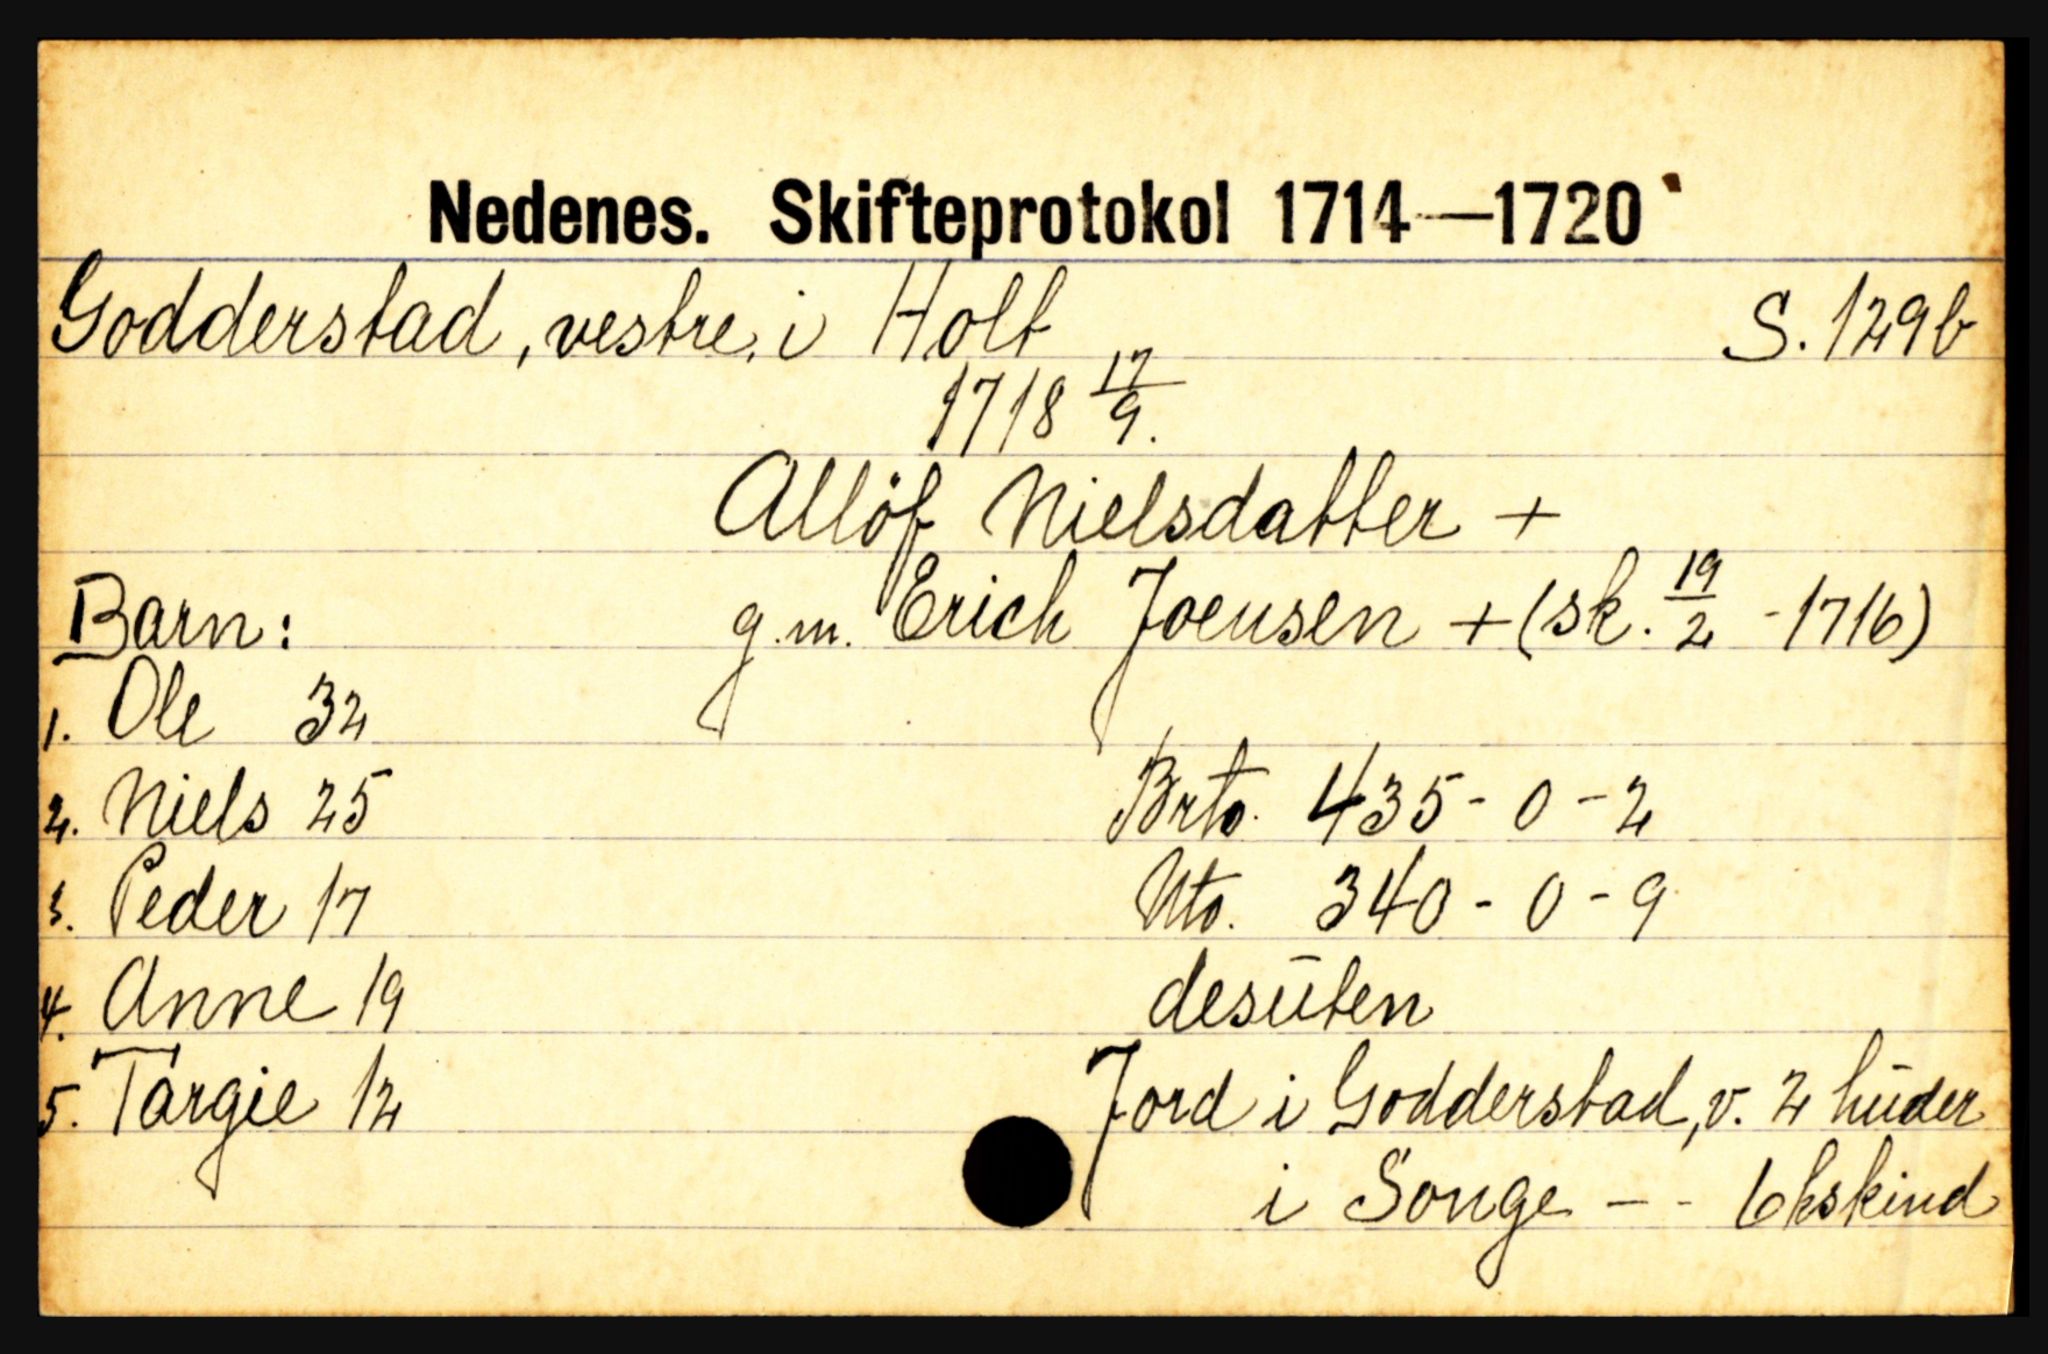 Nedenes. Skifteprotokol 1714—1720
Godderstad, vestre, i Holt S. 129b
1718 17/9.
Allöf Nielsdatter +
Barn: g.m. Erich Joensen + (sk. 19/2 - 1716)
1. Ole 32
2. Niels 25 Brto. 435 - 0 - 2
3. Peder 17 Nto. 340 - 0 - 9
4. Anne 19 desūten
5. Targie 12 Jord i Godderstad, v. 2 hūder
i Songe - - 6 kskind